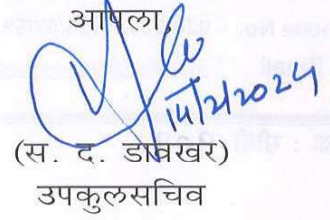 आपला,
14/2/2024
(स. द. डावखर)
उपकुलसचिव